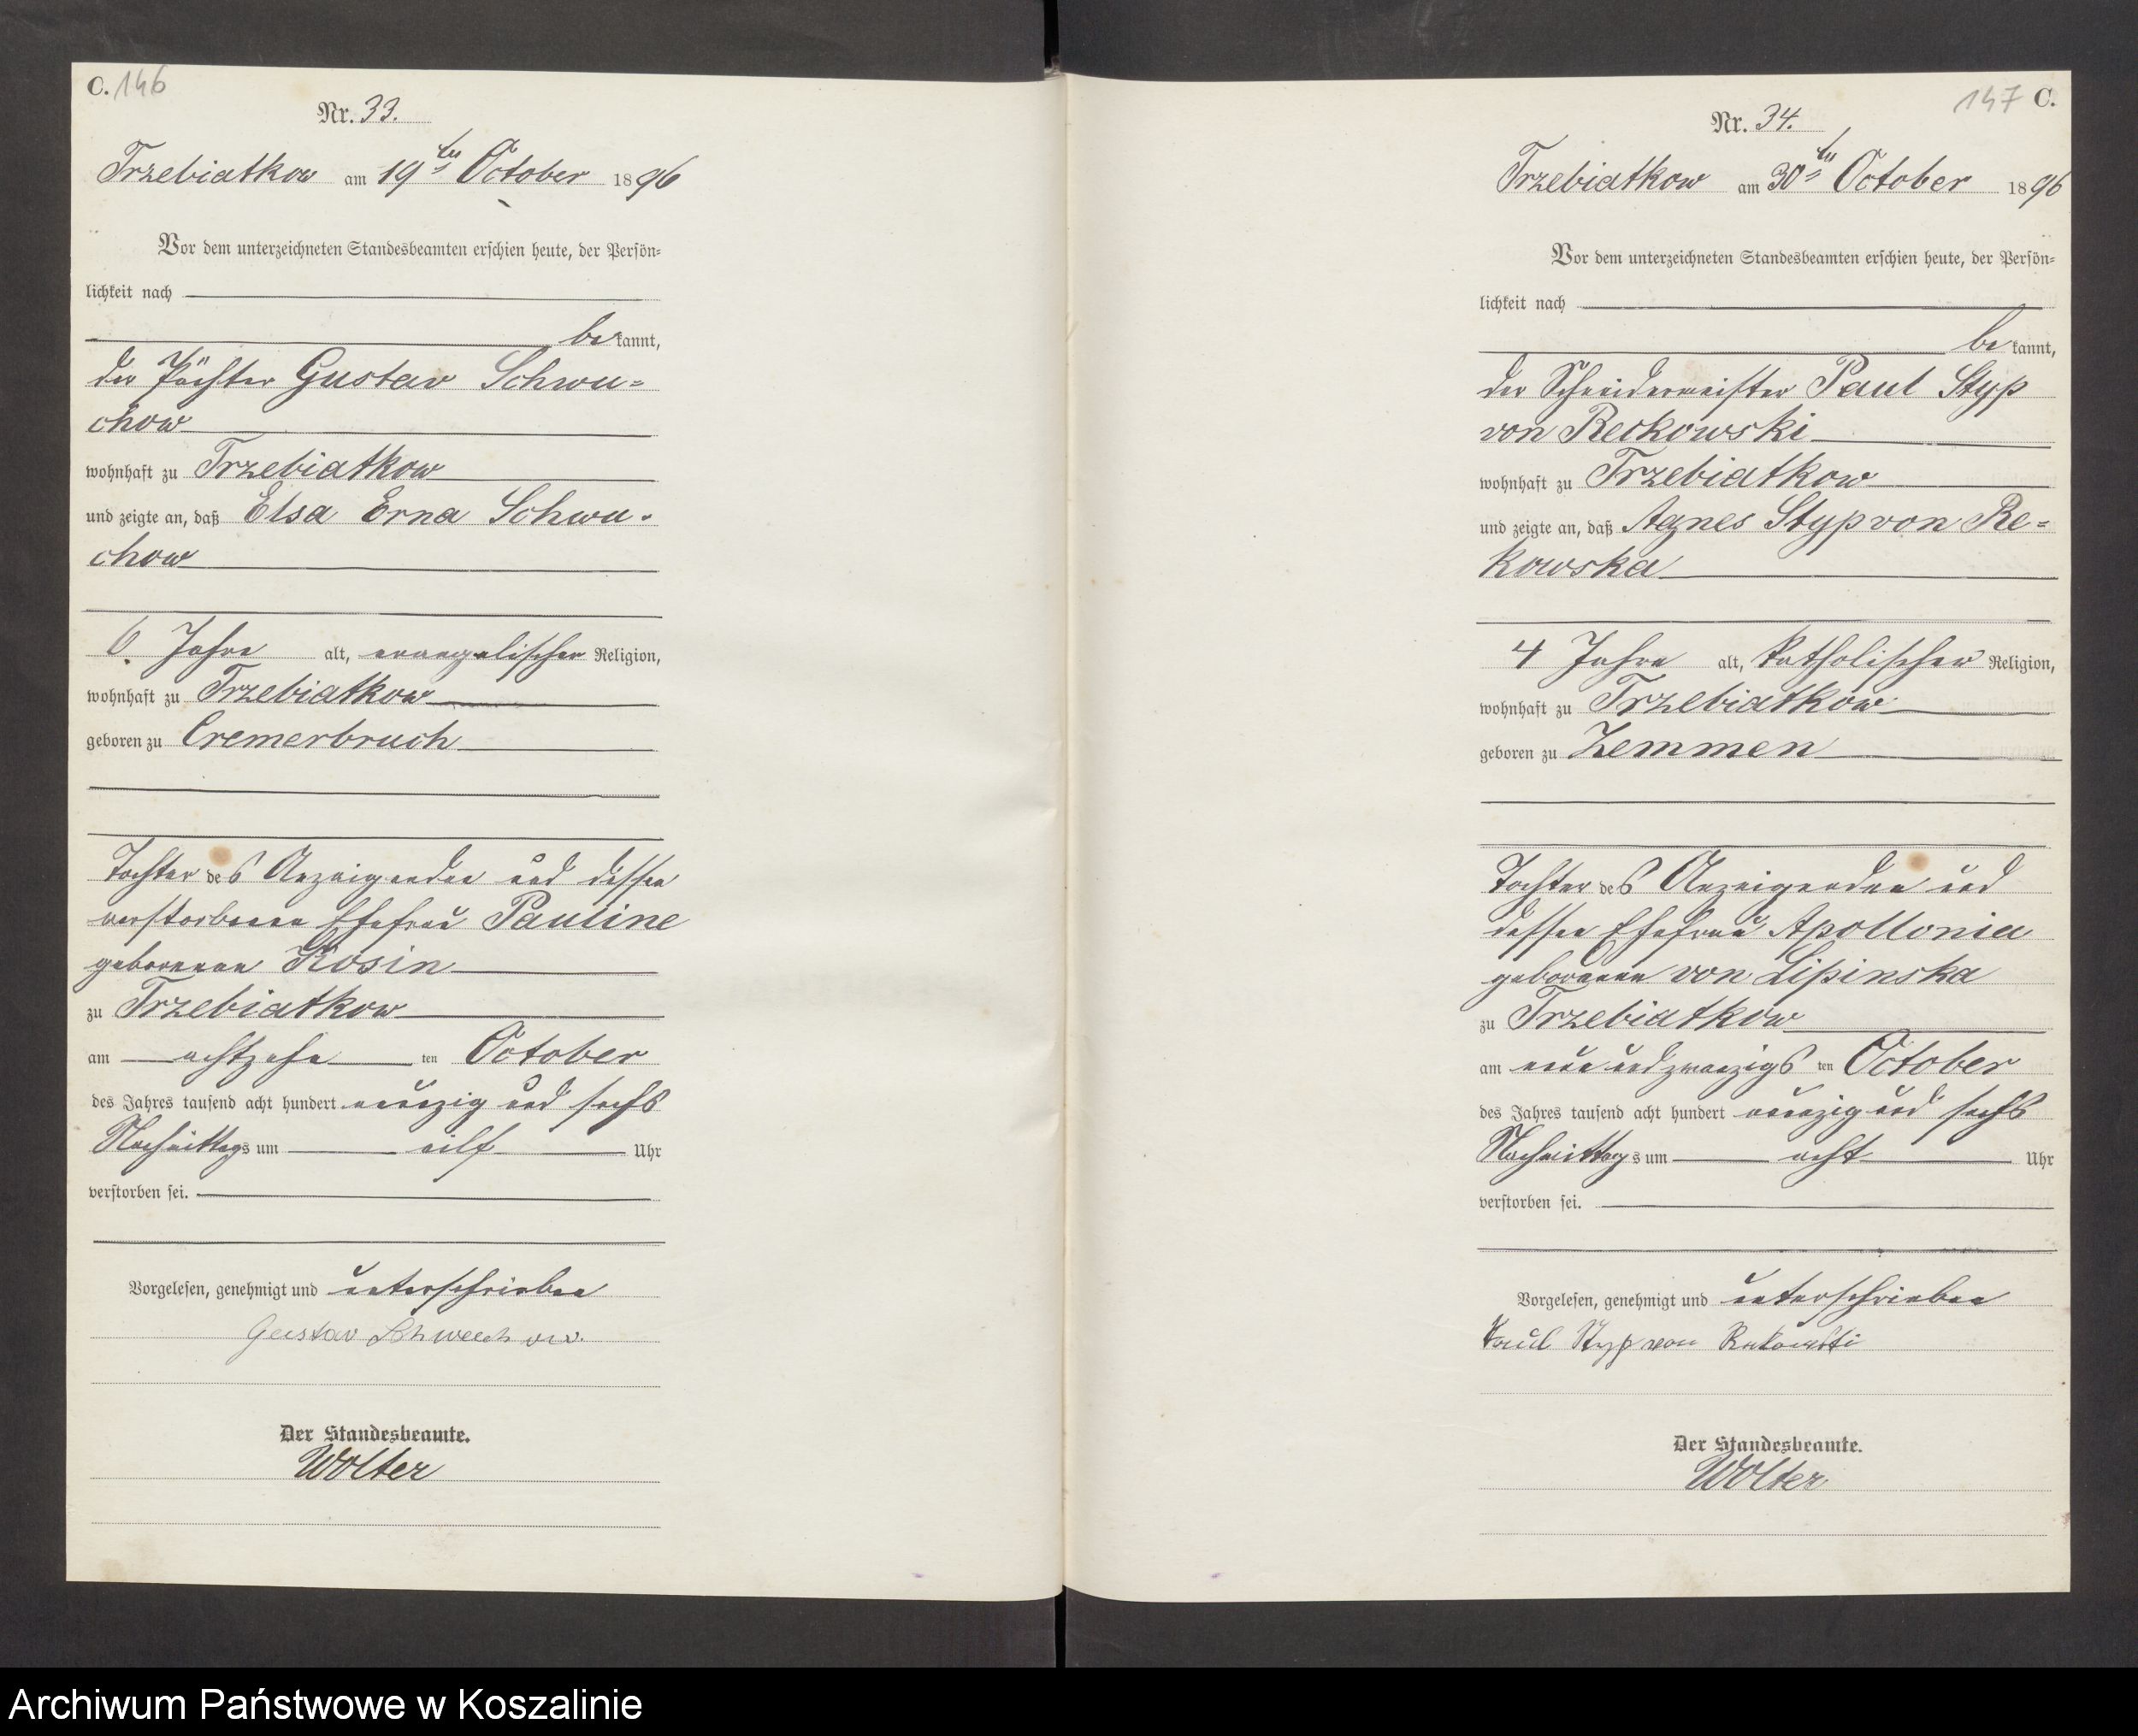 C. 146
Nr. 33.
Trzebiatkow am 19ten October 1896
Vor dem unterzeichneten Standesbeamten erschien heute, der Persön-
lichkeit nach
bekannt,
der Pächter Gustav Schwu-
chow
wohnhaft zu Trzebiatkow
und zeigte an, daß Elsa Erna Schwu-
chow
6 Jahre alt, evangelischer Religion,
wohnhaft zu Trzebiatkow
geboren zu Cremerbruch
Tochter des Anzeigenden und dessen
verstorbenen Ehefrau Pauline
geborenen Rosin
zu Trzebiatkow
am achtzehnten October
des Jahres tausend acht hundert neunzig und sechs
Nachmittags um eilf Uhr
verstorben sei.
Vorgelesen, genehmigt und unterschrieben
Gustav Schwuchow.
Der Standesbeamte.
Wolter
147 C.
Nr. 34.
Trzebiatkow am 30ten October 1896
Vor dem unterzeichneten Standesbeamten erschien heute, der Persön-
lichkeit nach
bekannt,
der Schneidermeister Paul Styp
von Reckowski
wohnhaft zu Trzebiatkow
und zeigte an, daß Agnes Styp von Re-
kowska
4 Jahre alt, katholischer Religion,
wohnhaft zu Trzebiatkow
geboren zu Zemmen
Tochter des Anzeigenden und
dessen Ehefrau Apollonia
geborenen von Lipinska
zu Trzebiatkow
am neun und zwanzigsten October
des Jahres tausend acht hundert neunzig und sechs
Nachmittags um acht Uhr
verstorben sei.
Vorgelesen, genehmigt und unterschrieben
Paul Styp von Rekowski
Der Standesbeamte.
Wolter
Archiwum Państwowe w Koszalinie